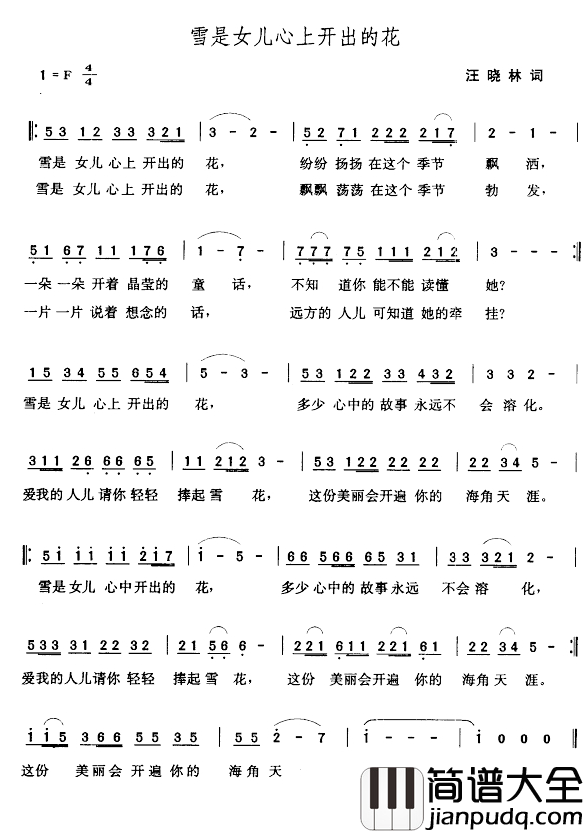 雪是女儿心上开出的花
1=F 4/4 汪晓林 词
53 12 33 321 | 3 - 2 - | 52 71 222 217 | 2 - 1 - |
雪是 女儿 心上 开出的 花， 纷纷 扬扬 在这个 季节 飘 洒，
雪是 女儿 心上 开出的 花， 飘飘 荡荡 在这个 季节 勃 发，
51 67 11 176 | 1 - 7 - | 777 75 111 212 | 3 - - - :||
一朵 一朵 开着 晶莹的 童 话， 不知 道你 能不能 读懂 她？
一片 一片 说着 想念的 话， 远方的 人儿 可知道 她的牵 挂？
15 34 55 654 | 5 - 3 - | 53 122 33 432 | 3 3 2 - |
雪是 女儿 心上 开出的 花， 多少 心中的 故事 永远不 会 溶化。
311 26 66 65 | 11 212 3 - | 533 122 122 22 | 22 34 5 - |
爱我的 人儿 请你 轻轻 捧起 雪 花， 这份美丽会开遍 你的 海角 天 涯。
||: 5i ii ii 2i7 | i - 5 - | 66 566 65 31 | 33 321 2 - |
雪是 女儿 心中 开出的 花， 多少 心中的 故事 永远 不会 溶 化，
533 31 22 32 | 21 56 6 - | 221 611 221 61 | 22 34 5 - :||
爱我的 人儿 请你 轻轻 捧起 雪 花， 这份 美丽会开遍 你的 海角 天 涯。
ii5 366 55 35 | 55 35 2 - 7 | i - - - | i 0 0 0 ||
这份 美丽会 开遍 你的 海角 天
简谱大全
jianpudq.com